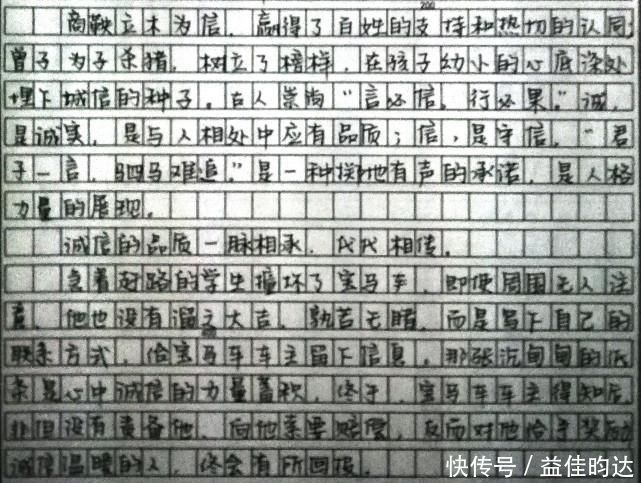 200
商鞅立木为信，赢得了百姓的支持和热切的认同；
曾子为子杀猪，树立了榜样，在孩子幼小的心底深处
埋下城信的种子。古人崇尚“言必信，行必果。”诚，
是诚实，是与人相处中应有品质；信，是守信，“君
子一言，驷马难追。”是一种掷地有声的承诺，是人格
力量的展现。
诚信的品质一脉相承，代代相传。
急着赶路的学生撞坏了宝马车，即便周围无人注
意，他也没有溜之大吉，孰若无睹，而是写下自己的
联系方式，给宝马车车主留下信息，那张沉甸甸的纸
条是心中诚信的力量蓄积，终于，宝马车车主得知后
非但没有责备他，向他索要赔偿，反而对他给予奖励
诚信温暖的人，终会有所回报。
快传号 / 益佳昀达